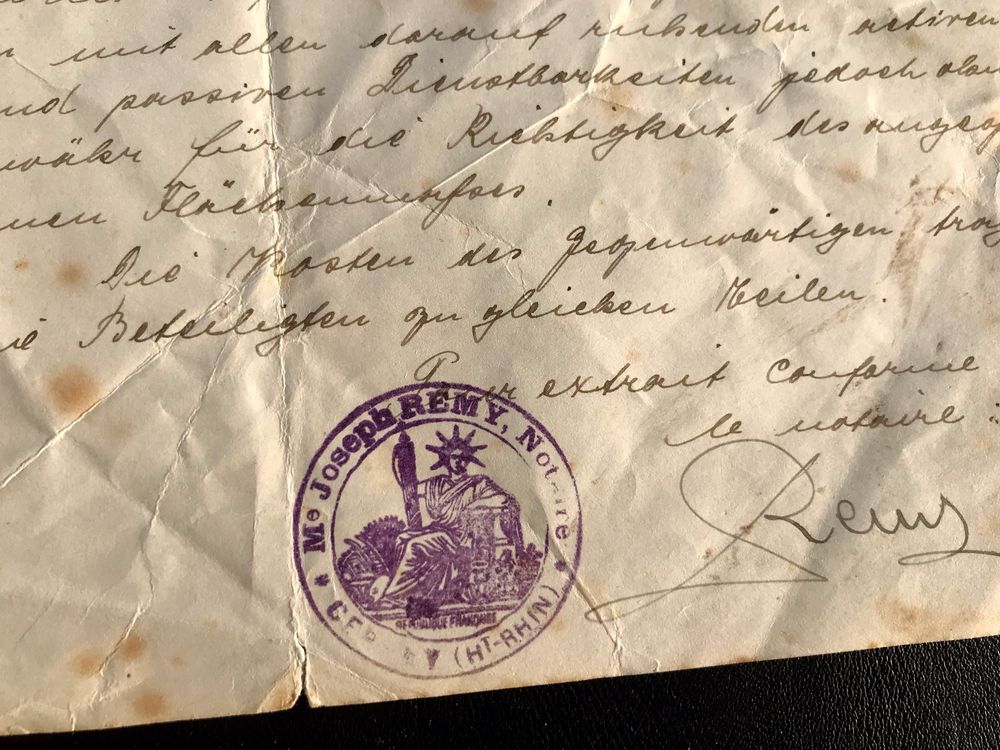 mit allen darauf ruhenden activen
und passiven Dienstbarkeiten jedoch ohne
währ für die Richtigkeit des angeg
nen Flächenmasses.
Die Kosten des Gegenwärtigen trag
ie Beteiligten zu gleichen Teilen.
Pour extrait conforme
le notaire :
Remy
Me Joseph REMY, Notaire
REPUBLIQUE FRANCAISE
(HT-RHIN)